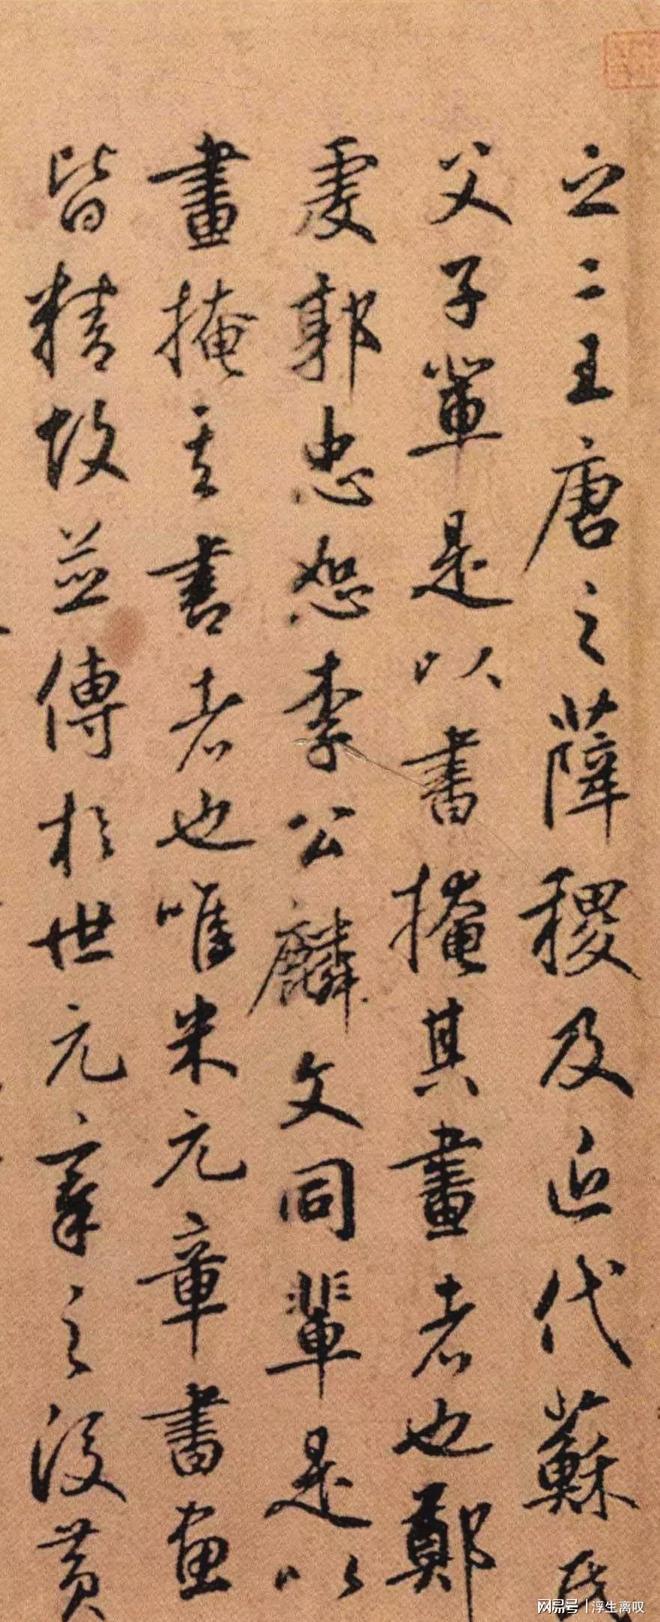 之二王唐之薛稷及近代蘇氏
父子輩是以書掩其畫者也鄭
虔郭忠恕李公麟文同輩是以
畫掩其書者也唯米元章書畫
皆精故並傳於世元章之後黃
网易号 | 浮生离叹